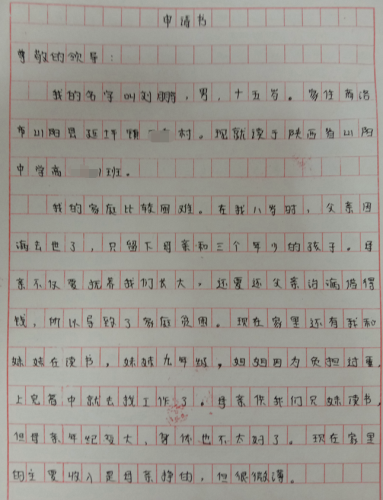 申请书
尊敬的领导：
我的名字叫刘鹏，男，十五岁。家住商洛
市山阳县延坪镇村。现就读于陕西省山阳
中学高班。
我的家庭比较困难。在我八岁时，父亲因
病去世了，只留下母亲和三个年少的孩子。母
亲不仅要抚养我们长大，还要还父亲治病借得
钱，所以导致了家庭贫困。现在家里还有我和
妹妹在读书，妹妹九年级，姐姐因为负担过重，
上完高中就去找工作了。母亲供我们兄妹读书，
但母亲年纪很大，身体也不太好了。现在家里
的主要收入是母亲挣的，但很微薄。